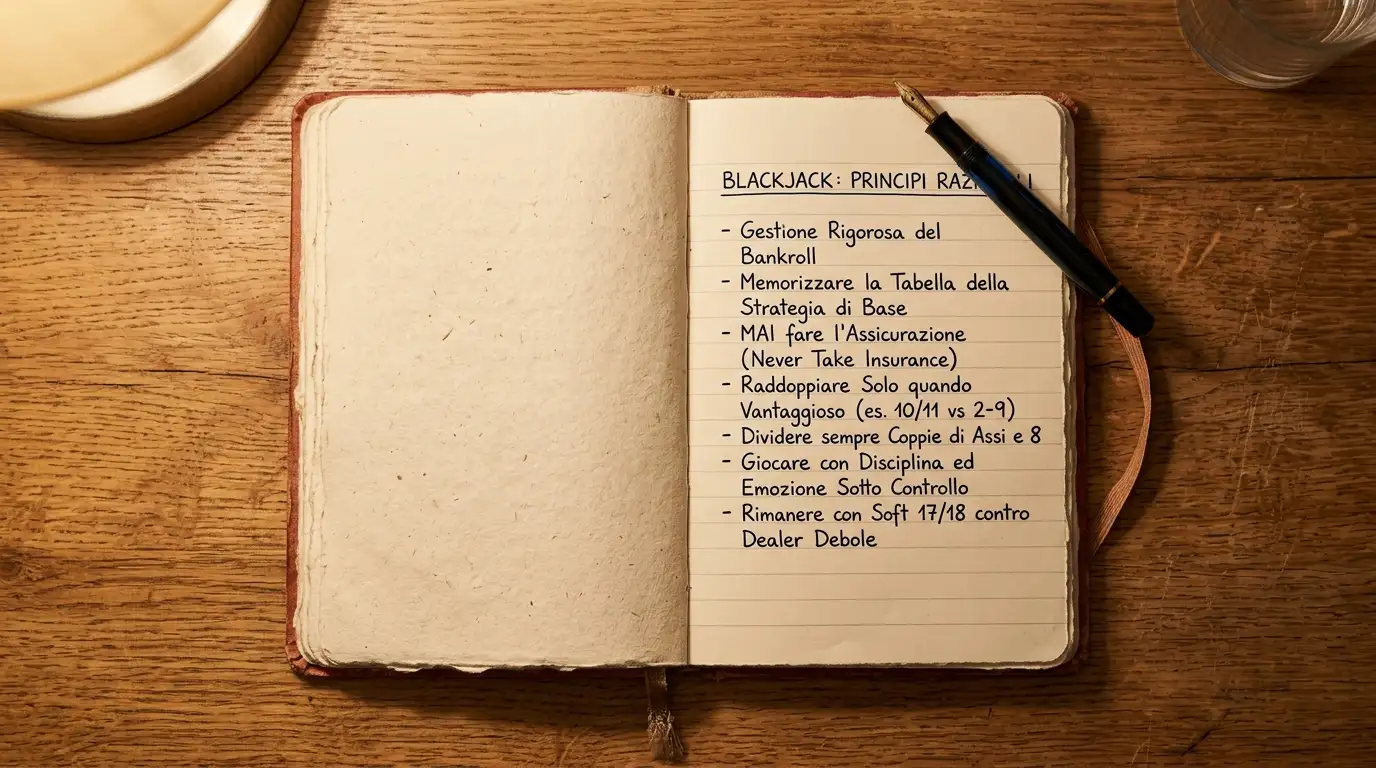 BLACKJACK: PRINCIPI
- Gestione Rigorosa del
Bankroll
- Memorizzare la Tabella della
Strategia di Base
- MAI fare l'Assicurazione
(Never Take Insurance)
- Raddoppiare Solo quando
Vantaggioso (es. 10/11 vs 2-9)
- Dividere sempre Coppie di Assi e 8
- Giocare con Disciplina ed
Emozione Sotto Controllo
- Rimanere con Soft 17/18 contro
Dealer Debole